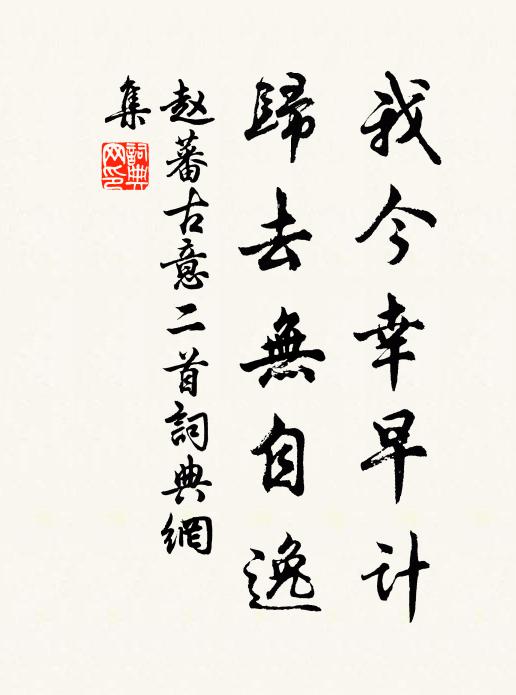 我今幸早计
歸去無自逸
赵蕃古意二首詞典網
集
詞典
网印